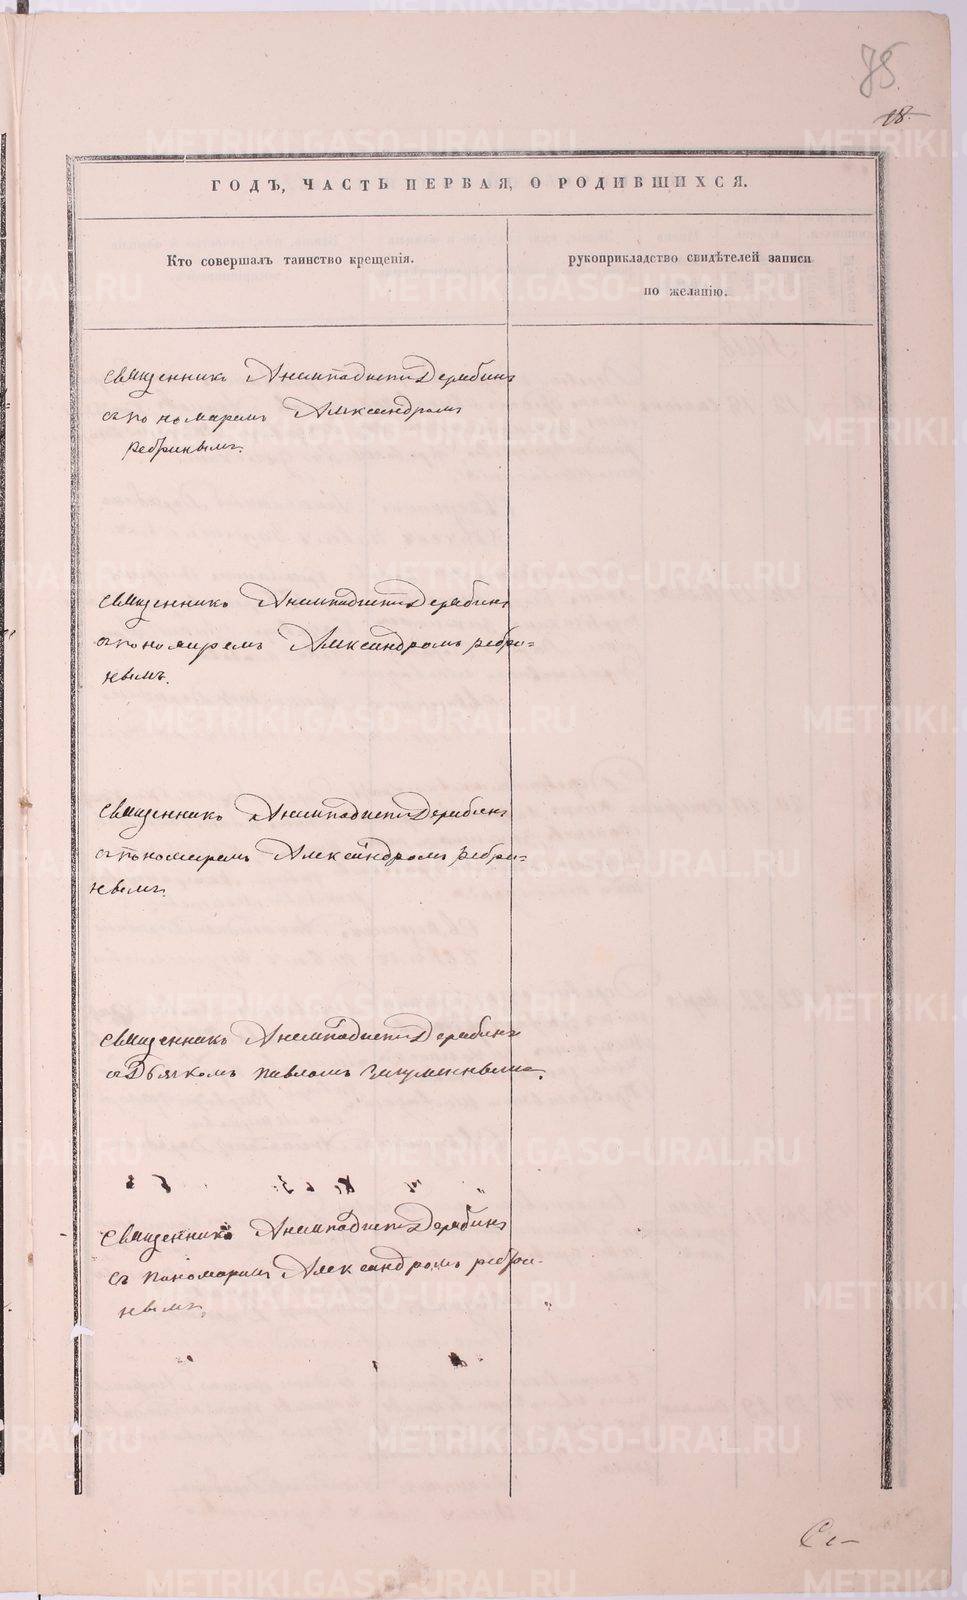 75.
18.
ГОДЪ, ЧАСТЬ ПЕРВАЯ, О РОДИВШИХСЯ.
Кто совершалъ таинство крещенія.
рукоприкладство свидѣтелей записи
по желанію.
Священникъ Анемподистъ Дерябинъ
съ пономаремъ Александромъ
Ребринымъ.
Священникъ Анемподистъ Дерябинъ
съ пономаремъ Александромъ Ребри=
нымъ.
Священникъ Анемподистъ Дерябинъ
съ пономаремъ Александромъ Ребри=
нымъ.
Священникъ Анемподистъ Дерябинъ
съ Дьячкомъ Павломъ Игуменнымъ.
Священникъ Анемподистъ Дерябинъ
съ пономаремъ Александромъ Ребри-
нымъ.
METRIKI.GASO-URAL.RU